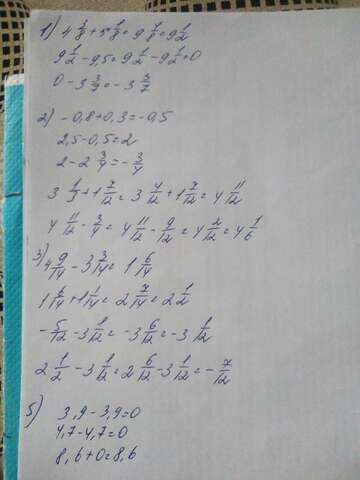 1) 4 3/8 + 5 1/8 = 9 4/8 = 9 1/2
9 1/2 - 9,5 = 9 1/2 - 9 1/2 = 0
0 - 3 3/7 = - 3 3/7
2) - 0,8 + 0,3 = - 0,5
2,5 - 0,5 = 2
2 - 2 3/4 = - 3/4
3 1/3 + 1 7/12 = 3 4/12 + 1 7/12 = 4 11/12
4 11/12 - 3/4 = 4 11/12 - 9/12 = 4 2/12 = 4 1/6
3) 4 9/14 - 3 3/14 = 1 6/14
1 6/14 + 1 1/14 = 2 7/14 = 2 1/2
- 5/12 - 3 1/12 = - 3 6/12 = - 3 1/2
2 1/2 - 3 1/12 = 2 6/12 - 3 1/12 = - 7/12
5)
3,9 - 3,9 = 0
4,7 - 4,7 = 0
8,6 + 0 = 8,6